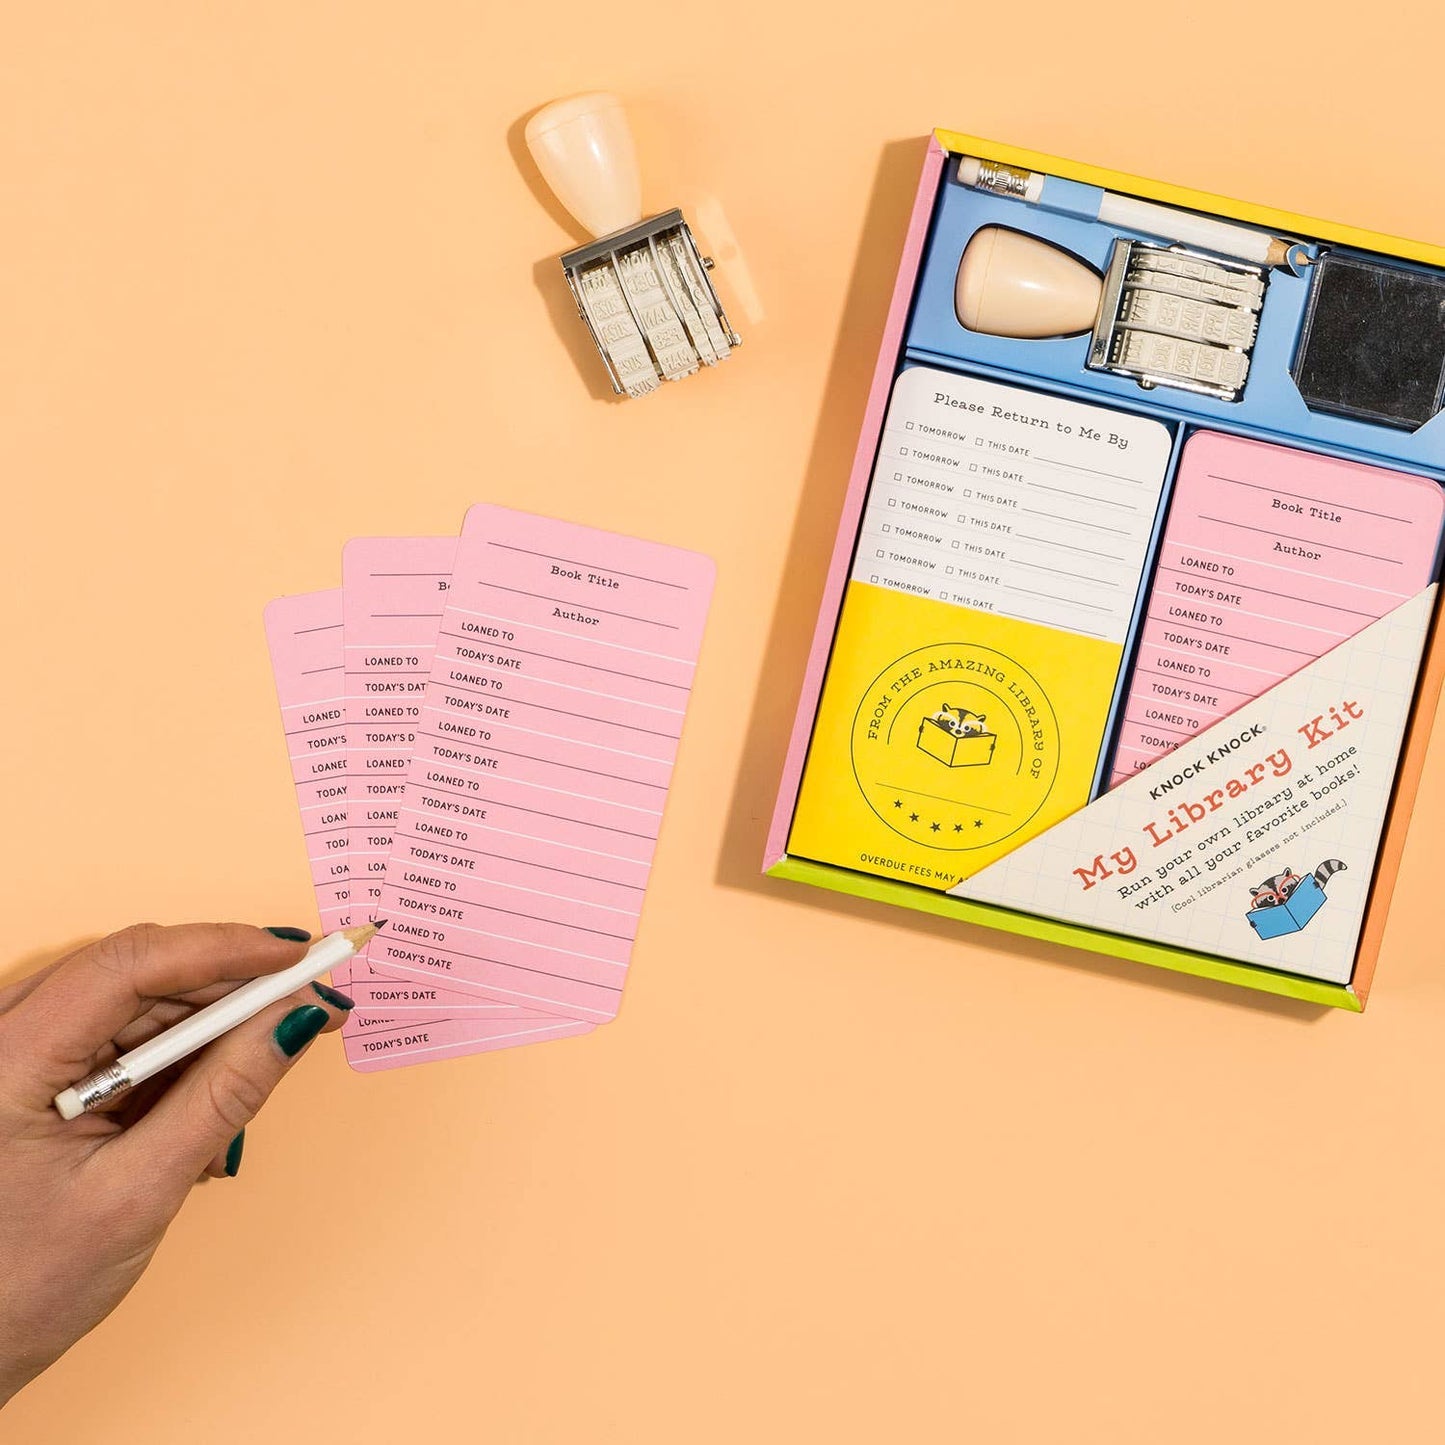 Book Title
Author
LOANED TO
TODAY'S DATE
LOANED TO
TODAY'S DATE
LOANED TO
TODAY'S DATE
LOANED TO
TODAY'S DATE
LOANED TO
TODAY'S DATE
LOANED TO
TODAY'S DATE
LOANED TO
TODAY'S DATE
LOANED TO
TODAY'S DAT
LOANED TO
TODAY'S D
LOANED T
TODAY'S
LOANE
TODAY'S DATE
LOANED T
TODAY'S
LOANED
TODAY
LOAN
TODA
LOA
TO
TODAY'S DATE
Please Return to Me By
TOMORROW THIS DATE
TOMORROW THIS DATE
TOMORROW THIS DATE
TOMORROW THIS DATE
TOMORROW THIS DATE
TOMORROW THIS DATE
TOMORROW THIS DATE
FROM THE AMAZING LIBRARY OF
OVERDUE FEES MAY
Book Title
Author
LOANED TO
TODAY'S DATE
LOANED TO
TODAY'S DATE
LOANED TO
TODAY'S DATE
LOANED TO
TODAY'S
KNOCK KNOCK®
My Library Kit
Run your own library at home
with all your favorite books!
(Cool librarian glasses not included.)